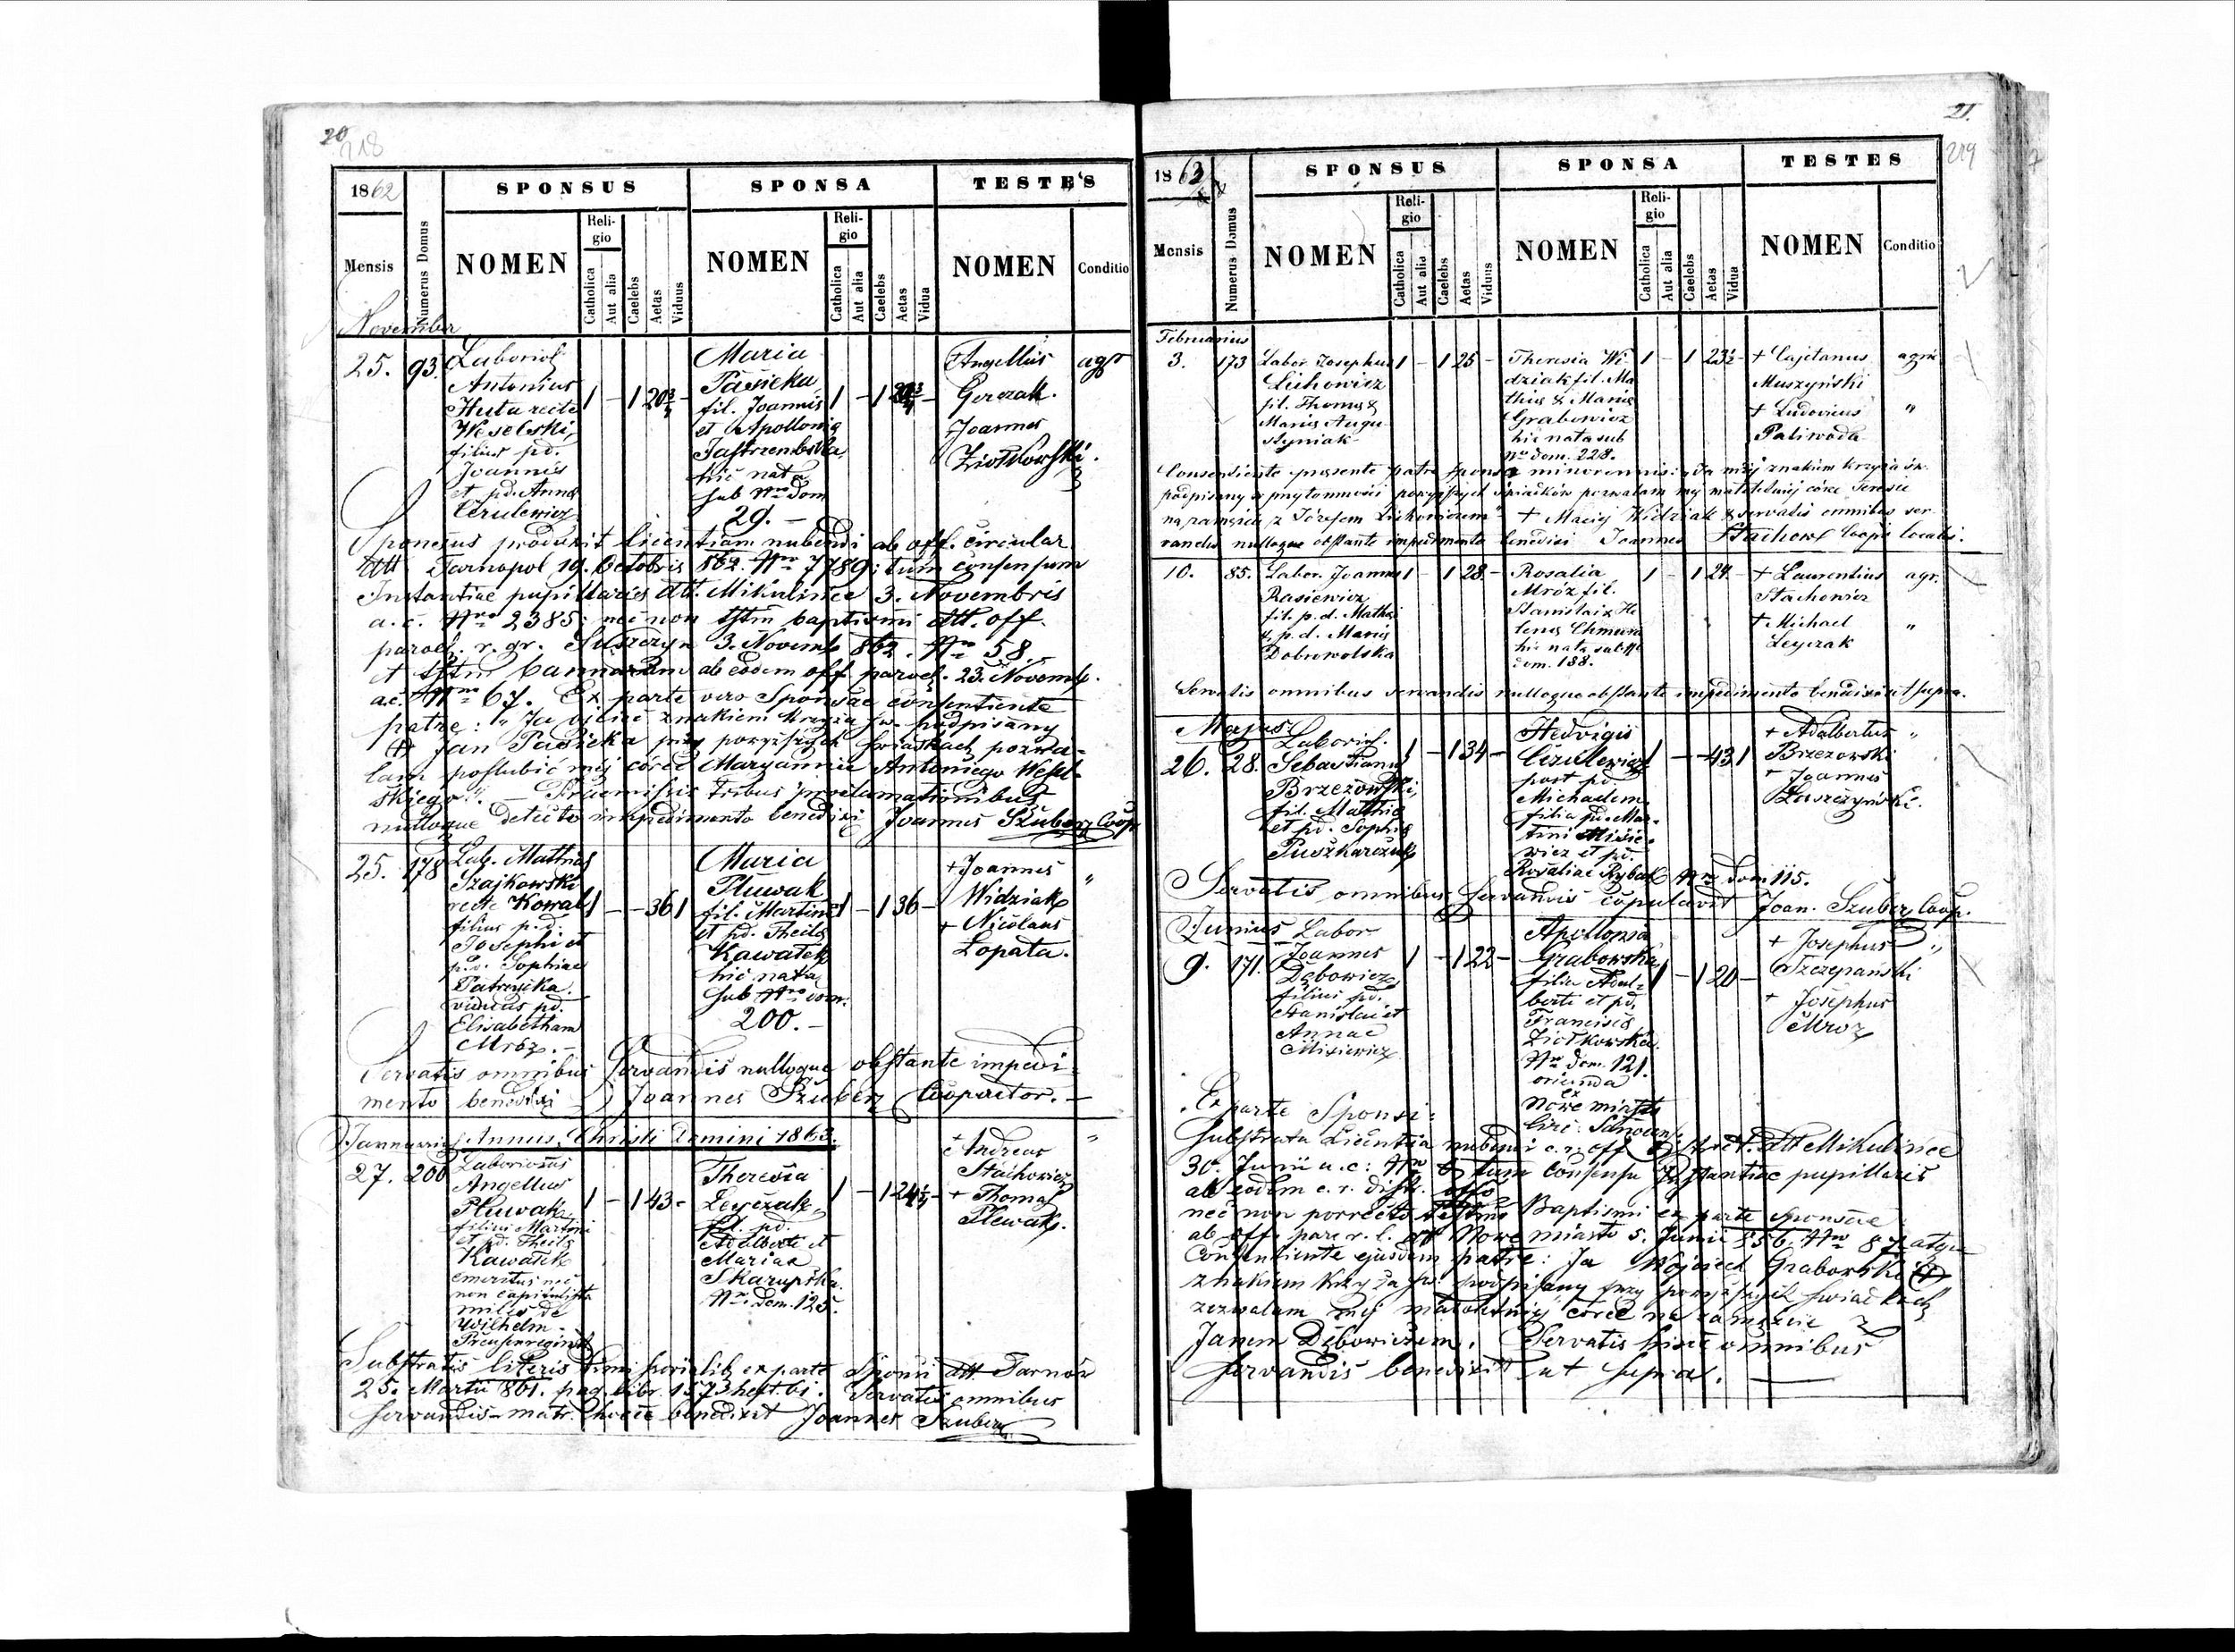 20
218
1862
Mensis
Numerus Domus
SPONSUS
NOMEN
Reli-
gio
Catholica
Aut alia
Caelebs
Aetas
Viduus
SPONSA
NOMEN
Reli-
gio
Catholica
Aut alia
Caelebs
Aetas
Vidua
TESTES
NOMEN
Conditio
November
25. 93.
Laborios
Antonius
Huta recte
Weselski,
filius pd.
Joannis
et pd. Anna
Cerulewicz
1 – 1 20 3/4
Maria
Pasieka
fil. Joannis
et Apollonia
Jastrzembska
hic nata
sub Nro Dom
29. –
1 – 1
Angellus
Gerczak.
Joannes
Ziołkowski.
agr
Sponsus produxit licentiam nubendi ab off. circular
dtt Tarnopol 19. Octobris 862. Nro 7789; tum consensum
Instantiae pupillaris dtt. Mikulince 3. Novembris
a. c. Nro 2385; nec non tstm baptismi dtt. off.
paroch. r. gr. 3. Novemb 862. Nro 58. –
et tstm bannorum ab eodem off paroch. 23. Novemb.
ac. Nro 67. Ex parte vero Sponsae consentiente
patre: "Ja ojciec znakiem krzyża św. podpisany
Jan Pasieka przy powyższych świadkach pozwa-
lam poslubić mej córce Maryannie Antoniego Wesel-
skiego". – Praemissis tribus proclamationibus
nulloque detecto impedimento benedixi Joannes Szuber Coop.
25. 178
Lab. Mathias
Szajkowski
recte Kowal
filius p.d.
Josephi et
p.d. Sophiae
Patrzyka.
viduus pd.
Elisabetham
Mróz. –
1 – – 36 1
Maria
Pluwak
fil. Martini
et pd. Thecla
Kawałek
hic nata
sub Nro dom.
200. –
1 – 1 36 –
+ Joannes
Widziak
+ Nicolaus
Łopata.
"
Servatis omnibus servandis nulloque obstante impedi-
mento benedixi Joannes Szuber Cooperator. –
Januarius Annus Christi Domini 1863.
27. 200
Laboriosus
Angellus
Pluwak
filius Martini
et pd. Thecla
Kawałek
emeritus nec
non capitulista
miles de
Wilhelm
1 – 1 43 –
Theresia
Leyczak
fil. pd.
Adalberti et
Mariae
Skarupska
Nro. Dom. 125.
1 – 1 24 1/2 –
+ Andreas
Stachowicz
+ Thomas
Plewak.
"
Substratis literis ex parte Sponsi dtt. Tarnow
25. Martii 861. Servatis omnibus
servandis benedixit Joannes Szuber
21.
219
1863
Mensis
Numerus Domus
SPONSUS
NOMEN
Reli-
gio
Catholica
Aut alia
Caelebs
Aetas
Viduus
SPONSA
NOMEN
Reli-
gio
Catholica
Aut alia
Caelebs
Aetas
Vidua
TESTES
NOMEN
Conditio
Februarius
3. 173
Labor. Josephus
Lichowicz
fil. Thoma &
Maria Augu-
styniak
1 – 1 25 –
Theresia Wi-
dziak fil. Ma
thia & Maria
Grabowicz
hic nata sub
Nro dom. 228.
1 – 1 23 1/2 –
+ Cajetanus
Muszyński
+ Ludovicus
Paliwoda
agri
"
Consentiente presente patre sponsa minorennis: "Ja niżej znakiem krzyża św.
podpisany w przytomności powyższych świadków pozwalam mej małoletniej córce Teresie
na zamęście z Józefem Lichowiczem" + Maciej Widziak & servatis omnibus ser-
vandis nulloque obstante impedimento benedixi Joannes Coop. localis.
10. 85.
Labor. Joannes
Rasiewicz
fil. p. d. Mathei
& p. d. Maria
Dobrowolska
1 – 1 28 –
Rosalia
Mróz fil.
Stanislai & He
lena Chmura
hic nata sub N
dom. 188.
1 – 1 24 –
+ Laurentius
Stachowicz
+ Michael
Leyczak
agr.
"
Servatis omnibus servandis nulloque obstante impedimento benedixi ut supra.
Majus
26. 28.
Laborios.
Sebastianus
Brzezowski,
fil. Matthia
et pd. Sophia
Puszkarczuk
1 – 1 34 –
Hedvigis
Cizulewicz
post pd.
Michaelem
filia pd. Mar-
tini Misie-
wicz et pd.
Rosaliae Rybak Nro dom 115.
1 – – 43 1
+ Adalbertus
Brzezowski
+ Joannes
Łaszczyński.
"
Servatis omnibus servandis copulavit Joan. Szuber Coop.
Junius
9. 171.
Labor
Joannes
Dębowicz
filius pd.
Stanislai et
Annae
Misiewicz
1 – 1 22 –
Apollonia
Grabowska
filia Adal-
berti et pd.
Francisca
Ziołkowska.
Nro Dom. 121.
oriunda
ex
Nowe miasto
1 – 1 20 –
+ Josephus
Szczepański
+ Josephus
Mroz
"
Ex parte Sponsi:
Substrata Licentia nubendi c. r. off distrct. dtt Mikulince
30. Junii a. c: Nro tum Consensu Instantiae pupillaris
ab eodem c. r. distr. offo
nec non porrecto testimo Baptismi ex parte Sponsae
ab off. paro r. l. Nowe miasto 5. Junii 856. Nro 87 atque
Consentiente ejusdem patre: Ja Wojciech Grabowski
znakiem krzyża św. podpisany przy powyższych świadkach
zezwalam mej małoletniej córce na zamęście z
Janem Dębowiczem. Servatis hisce omnibus
servandis benedixit ut supra. –